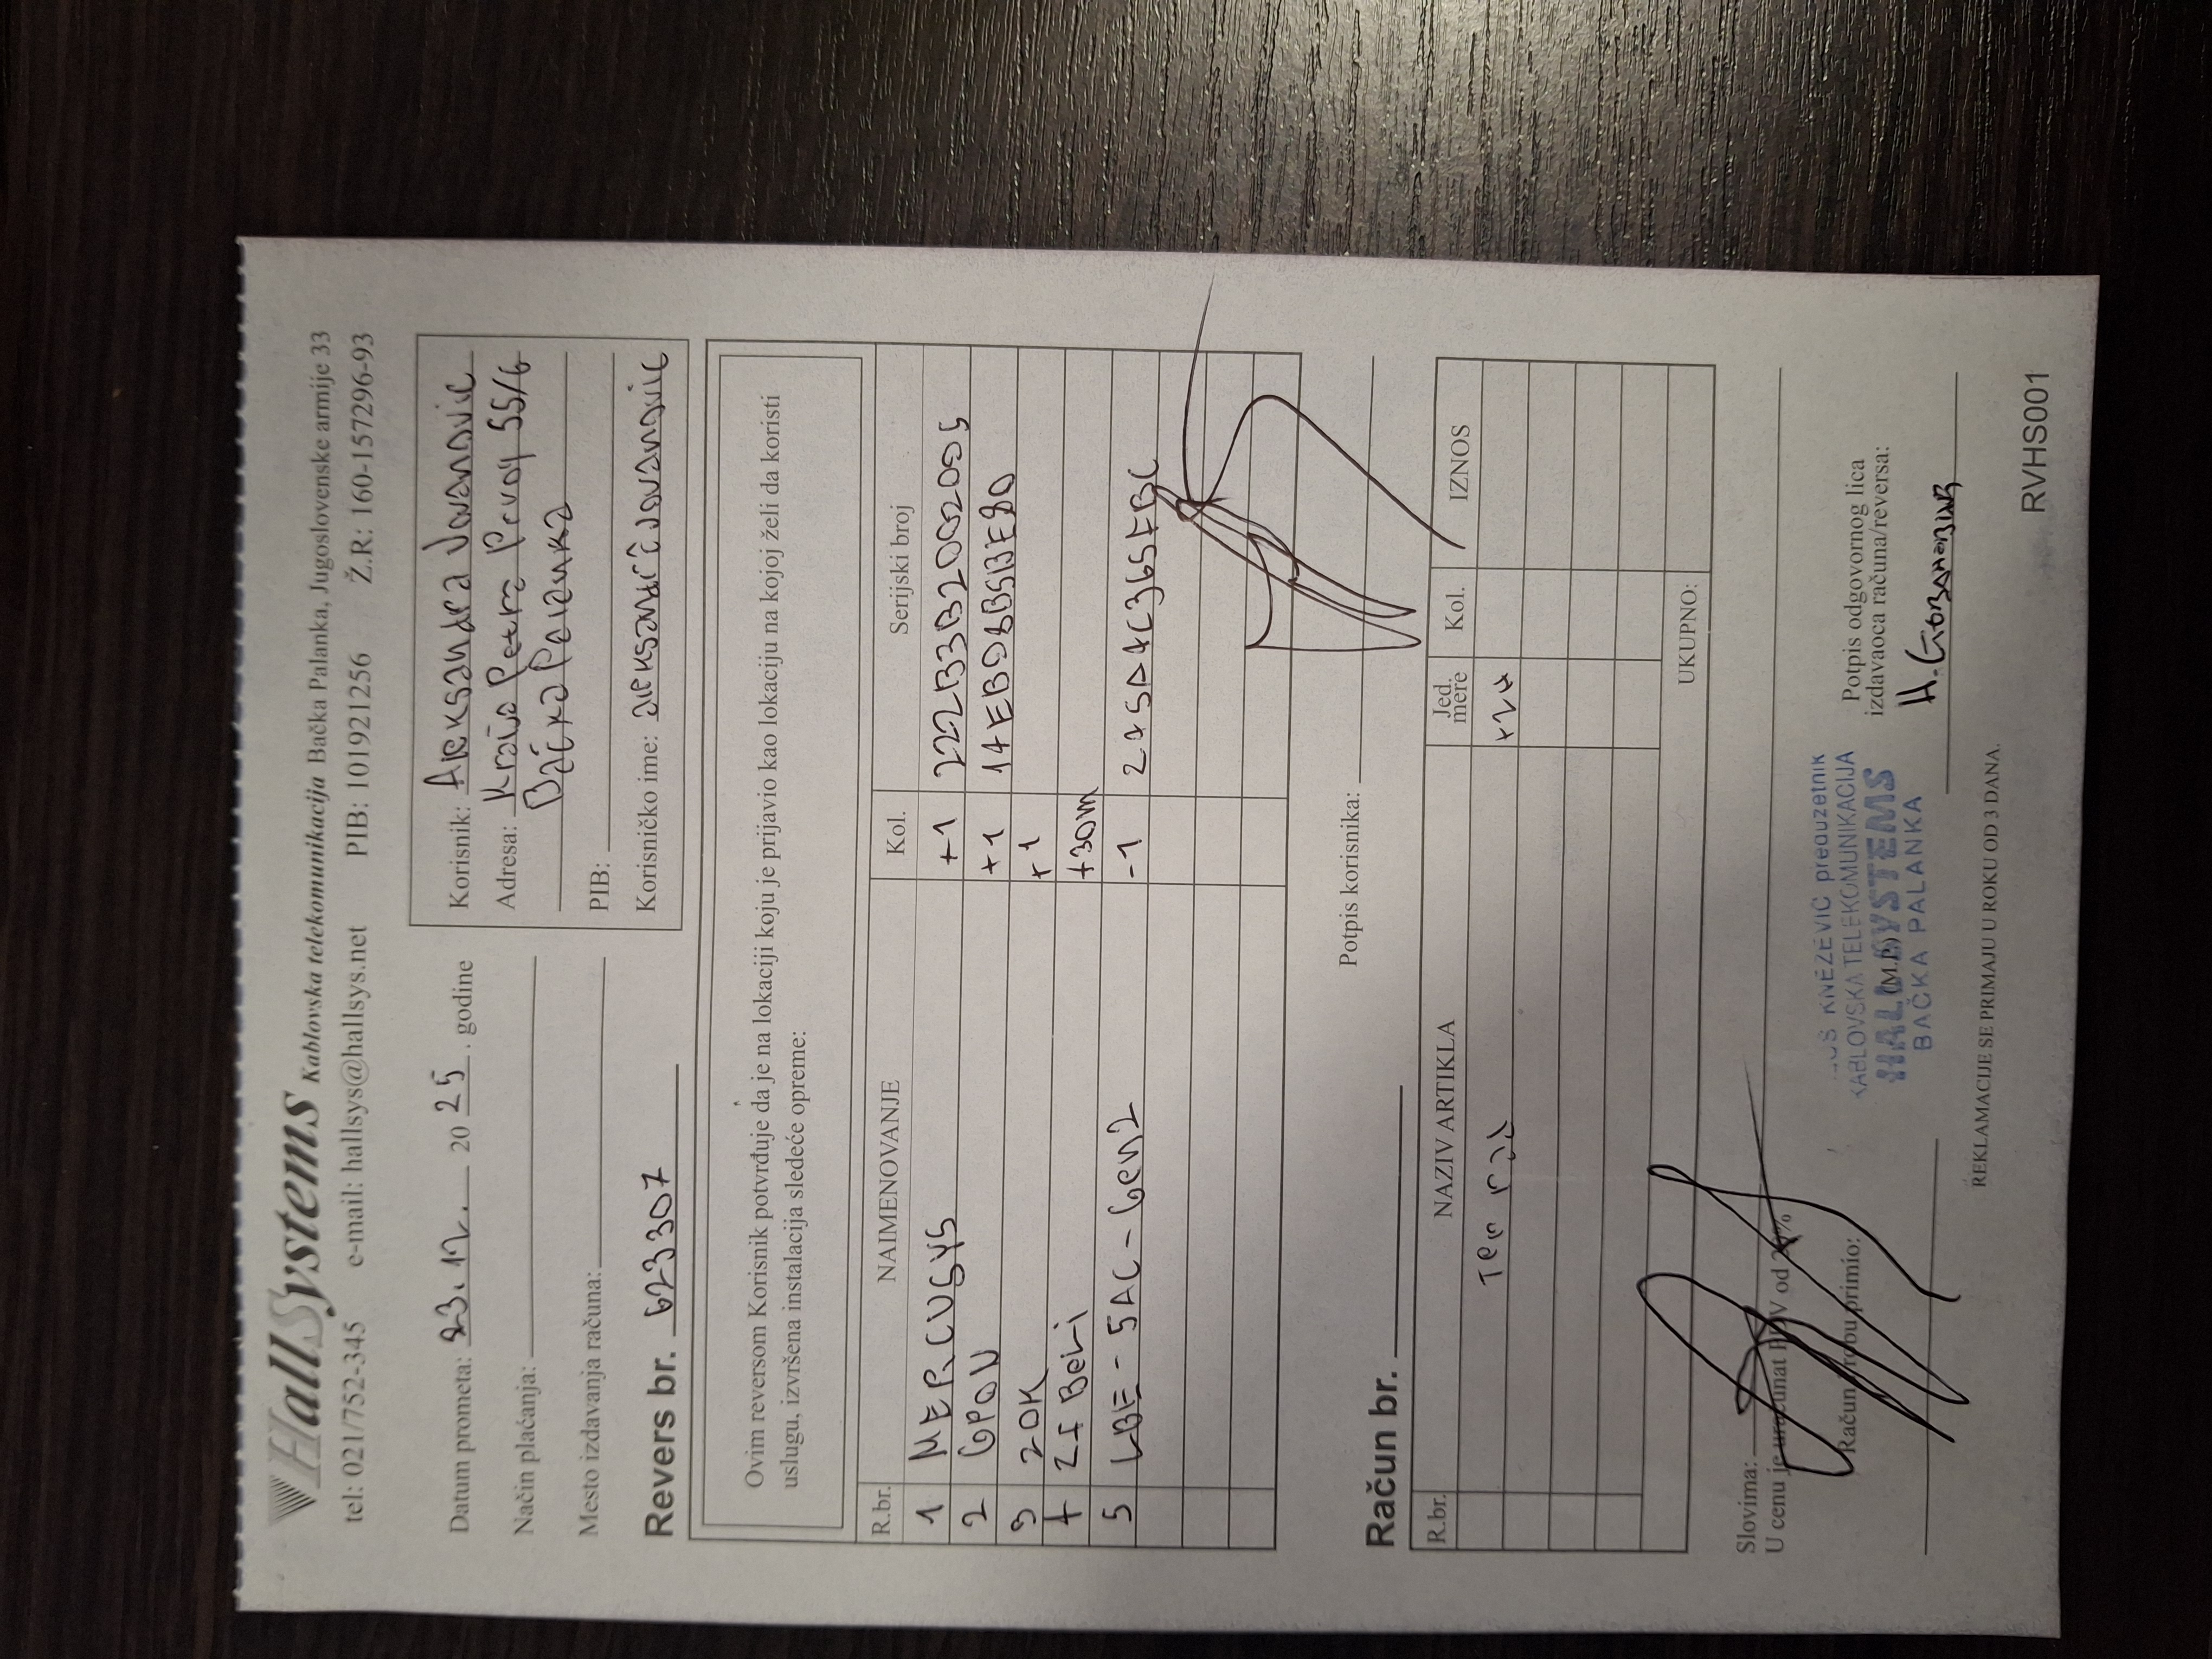 HallSystems Kablovska telekomunikacija Bačka Palanka, Jugoslovenske armije 33
tel: 021/752-345 e-mail: hallsys@hallsys.net PIB: 101921256 Ž.R: 160-157296-93
Datum prometa: 23.12. 2025. godine
Način plaćanja:
Mesto izdavanja računa:
Korisnik: Aleksandra Jovanovic
Adresa: Kralja Petra Prvog 55/6
Bačka Palanka
PIB:
Korisničko ime:
Revers br. 623307
Ovim reversom Korisnik potvrđuje da je na lokaciji koju je prijavio kao lokaciju na kojoj želi da koristi
uslugu, izvršena instalacija sledeće opreme:
R.br. NAIMENOVANJE Kol. Serijski broj
1 MERCUSYS +1 222B33B2002005
2 GPON +1 14EB08B5BE80
3 ZOK +1
4 ZI Beli +30m
5 LBE-5AC-Gen2 -1
Potpis korisnika:
Račun br.
R.br. NAZIV ARTIKLA Jed. mere Kol. IZNOS
UKUPNO:
Slovima:
U cenu je uračunat PDV od 20%
Račun i robu primio:
KNEŽEVIĆ preduzetnik
KABLOVSKA TELEKOMUNIKACIJA
(M.P.)
HALLSYSTEMS
BAČKA PALANKA
Potpis odgovornog lica
izdavaoca računa/reversa:
REKLAMACIJE SE PRIMAJU U ROKU OD 3 DANA.
RVHS001